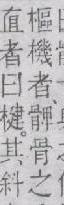 樞機者髀骨之
直者曰楗其斜